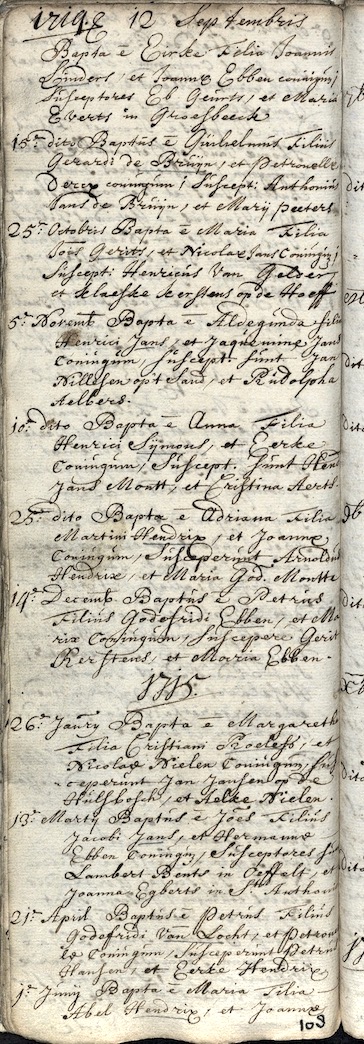 12 Septembris
Bapta ē Eirke Filia Joannis
Linders, et Joannæ Ebben coningum;
Susceptores Eb Geurts, et Maria
Everts in Groesbeeck
15.ᵃ dito Baptūs ē Guilielmūs Filiūs
Gerardi de Bruijn, et Petronellæ
Dercx coningum; Suscept: Anthoniūs
Jans de Bruijn, et Marij peeters
25.ᵃ Octobris Bapta ē Maria Filia
Jois Gerits, et Nicolaæ Jans Coningum;
Suscepti Henricus Van Gelder
et Klaeske Kerstens op de Hoeff
5.ᵃ Novemb Bapta ē Aldegūnda filia
Henrici Jans, et Jaqueminæ Jans
Coningum, suscept. sūnt Jan
Nillesen op't Sand, et Rūdolpha
Aelbers.
10.ᵃ dito Bapta ē Anna Filia
Henrici Sijmons, et Eerke
Coningūm, Suscept. sunt Hen
Jans Montt, et Cristina Aerts.
25.ᵃ dito Bapta ē Adriana Filia
Martini Hendrix, et Joannæ
Coningūm, Susceperunt Arnoldūs
Hendrix, et Maria God. Montts
14.ᵃ Decemb Baptūs ē Petrūs
Filiūs Godefridi Ebben, et Ma
riæ Coningum, suscepere Gerit
Kerstens, et Maria Ebben.
1715.
26.ᵃ Janry Bapta ē Margareth
Filia Cristiani Roeless, et
Nicolaæ Nielen Coningum, sus
ceperūnt Jan Jansen op de
Hūlsbosch, et Aelke Nielen.
13.ᵃ Marty Baptūs ē Joēs Filiūs
Jacobi Jans, et Hermannæ
Ebben Coningū, Susceptores
Lambert Bents in Oeffelt, et
Joanna Egberts in St Anthonis
21.ᵃ April Baptūs ē Petrūs Filiūs
Godefridi Van Locht, et Petron
læ Coningum, susceperunt Petrūs
Hansen, et Eerke Hendrix
1.ᵃ Junij Bapta ē Maria Filia
Abel Hendrix, et Joannæ
103